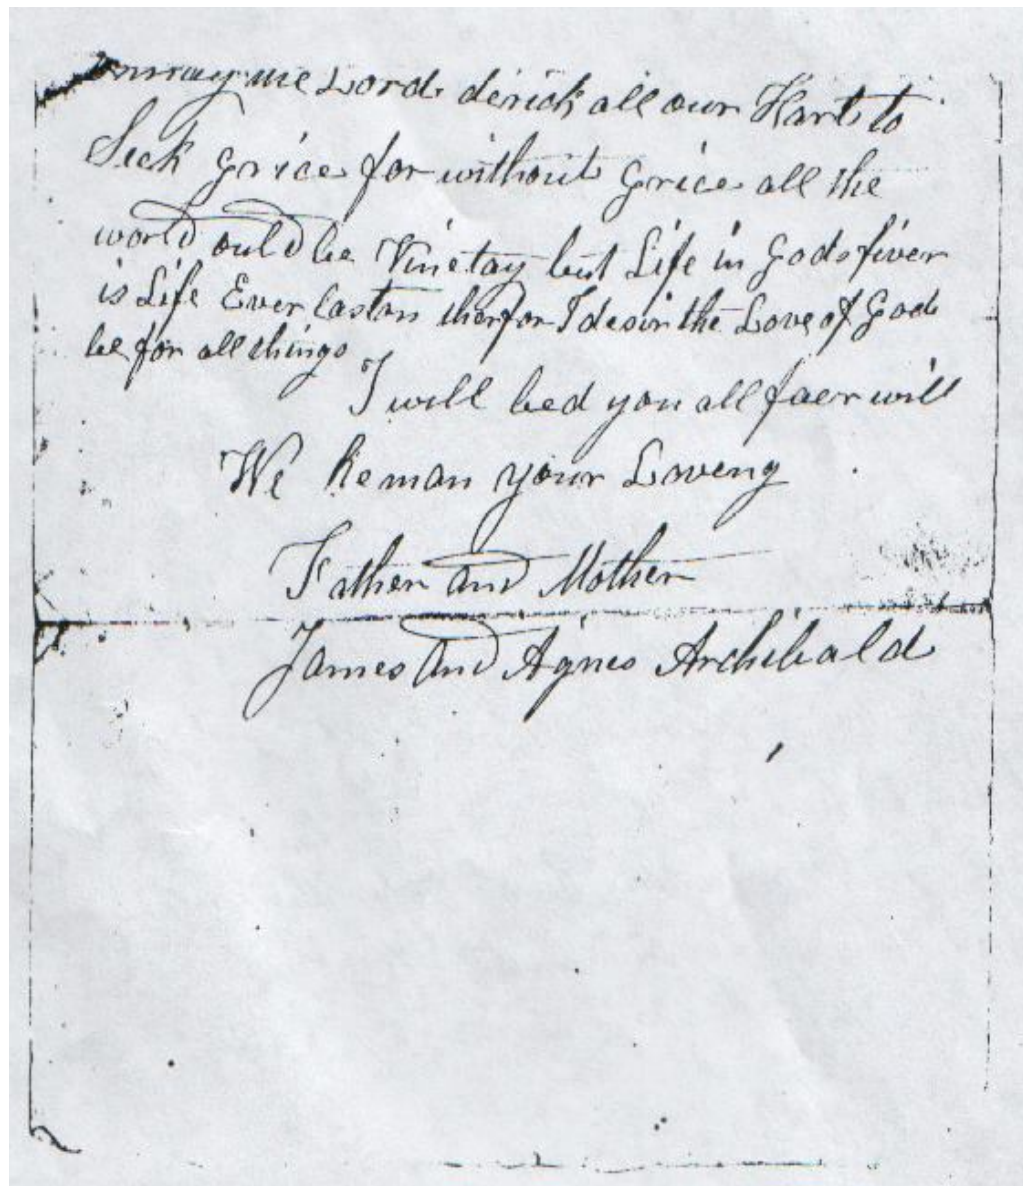 me Lord derick all our Hart to
Seek grice for without Grice all the
world ould be Vinetay but Life in Gods fiver
is Life Ever laston therfor I desir the Love of God
be for all things
I will bed you all faer will
We Reman your Loveng
Father and Mother
James and Agnes Archibald